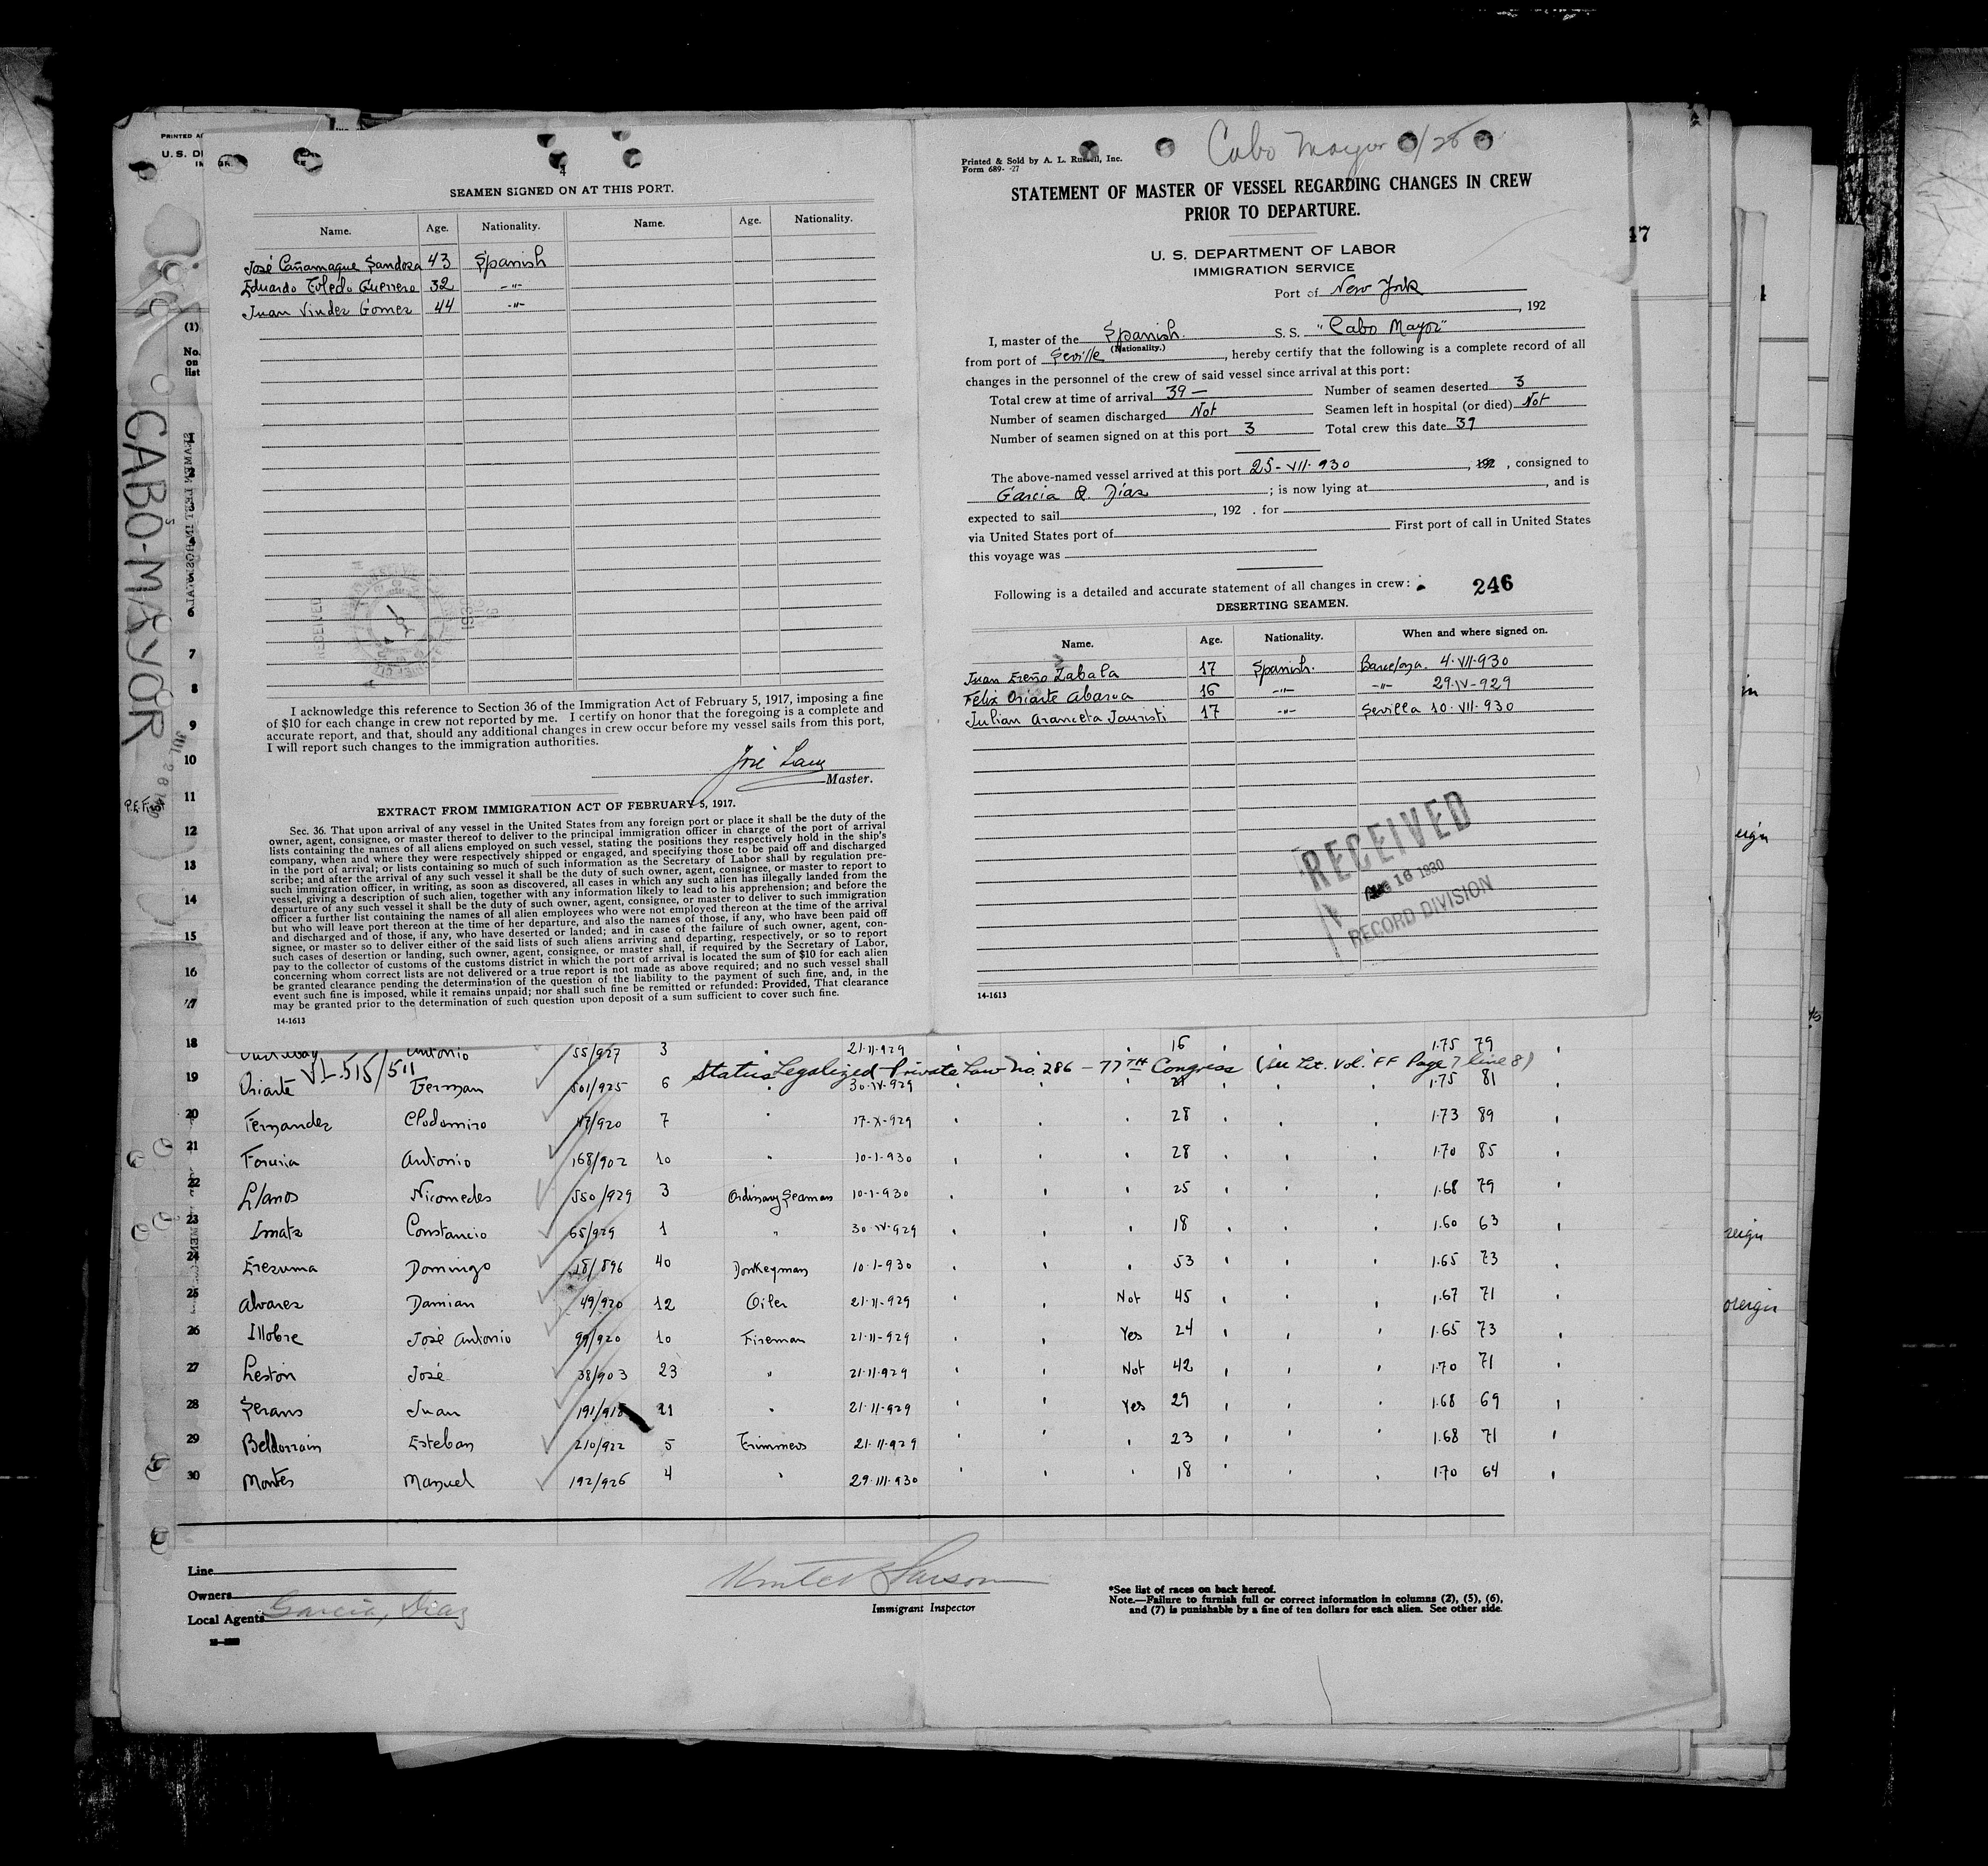 PRINTED
U. S.
4
SEAMEN SIGNED ON AT THIS PORT.
Name. Age. Nationality. Name. Age. Nationality.
José Cañamaque Sandoza 43 Spanish
Eduardo Toledo Guerrero 32 -"-
Juan Vindez Gomez 44 -"-
I acknowledge this reference to Section 36 of the Immigration Act of February 5, 1917, imposing a fine
of $10 for each change in crew not reported by me. I certify on honor that the foregoing is a complete and
accurate report, and that, should any additional changes in crew occur before my vessel sails from this port,
I will report such changes to the immigration authorities.
Master.
EXTRACT FROM IMMIGRATION ACT OF FEBRUARY 5, 1917.
Sec. 36. That upon arrival of any vessel in the United States from any foreign port or place it shall be the duty of the
owner, agent, consignee, or master thereof to deliver to the principal immigration officer in charge of the port of arrival
lists containing the names of all aliens employed on such vessel, stating the positions they respectively hold in the ship's
company, when and where they were respectively shipped or engaged, and specifying those to be paid off and discharged
in the port of arrival; or lists containing so much of such information as the Secretary of Labor shall by regulation pre-
scribe; and after the arrival of any such vessel it shall be the duty of such owner, agent, consignee, or master to report to
such immigration officer, in writing, as soon as discovered, all cases in which any such alien has illegally landed from the
vessel, giving a description of such alien, together with any information likely to lead to his apprehension; and before the
departure of any such vessel it shall be the duty of such owner, agent, consignee, or master to deliver to such immigration
officer a further list containing the names of all alien employees who were not employed thereon at the time of the arrival
but who will leave port thereon at the time of her departure, and also the names of those, if any, who have been paid off
and discharged and of those, if any, who have deserted or landed; and in case of the failure of such owner, agent, con-
signee, or master so to deliver either of the said lists of such aliens arriving and departing, respectively, or so to report
such cases of desertion or landing, such owner, agent, consignee, or master shall, if required by the Secretary of Labor,
pay to the collector of customs of the customs district in which the port of arrival is located the sum of $10 for each alien
concerning whom correct lists are not delivered or a true report is not made as above required; and no such vessel shall
be granted clearance pending the determination of the question of the liability to the payment of such fine, and, in the
event such fine is imposed, while it remains unpaid; nor shall such fine be remitted or refunded: Provided, That clearance
may be granted prior to the determination of such question upon deposit of a sum sufficient to cover such fine.
14-1613
Cabo Mayor
Printed & Sold by A. L. Russell, Inc.
Form 689- -27
STATEMENT OF MASTER OF VESSEL REGARDING CHANGES IN CREW
PRIOR TO DEPARTURE.
U. S. DEPARTMENT OF LABOR
IMMIGRATION SERVICE
Port of New York
, 192
I, master of the Spanish S. S. "Cabo Mayor"
(Nationality.)
from port of Seville, hereby certify that the following is a complete record of all
changes in the personnel of the crew of said vessel since arrival at this port:
Total crew at time of arrival 39 — Number of seamen deserted 3
Number of seamen discharged Not Seamen left in hospital (or died) Not
Number of seamen signed on at this port 3 Total crew this date 39
The above-named vessel arrived at this port 25-VII-930, 192 , consigned to
Garcia & Diaz ; is now lying at , and is
expected to sail , 192 . for
via United States port of First port of call in United States
this voyage was
Following is a detailed and accurate statement of all changes in crew:
246
DESERTING SEAMEN.
Name. Age. Nationality. When and where signed on.
Juan Ereño Zabala 17 Spanish. Barcelona. 4-VII-930
Felix Oriarte Abaroa 16 -"- -"- 29-IV-929
Julian Aranceta Jauristi 17 -"- Sevilla 10-VII-930
RECEIVED
AUG 16 1930
RECORD DIVISION
14-1613
47
(1)
No.
on
list
CABO-MAYOR
7
8
9
10
11
12
13
14
15
16
17
18 Antonio 55/927 3 21-11-929 16 1.75 79
VL 515/511 Status Legalized - Private Law No. 286 - 77TH Congress (See Let. Vol. FF Page 7 line 8)
19 Oriarte German 501/925 6 30-IV-929 1.75 81
20 Fernandez Clodomiro 47/920 7 17-X-929 28 1.73 89
21 Foruria Antonio 168/902 10 " 10-1-930 28 1.70 85
22 Llanos Nicomedes 550/929 3 Ordinary Seaman 10-1-930 25 1.68 79
23 Imatz Constancio 65/929 1 " 30-IV-929 18 1.60 63
24 Erezuma Domingo 18/896 40 Donkeyman 10-1-930 53 1.65 73
25 Alvarez Damian 49/920 12 Oiler 21-11-929 Not 45 1.67 71
26 Illobre José Antonio 99/920 10 Fireman 21-11-929 Yes 24 1.65 73
27 Leston José 38/903 23 " 21-11-929 Not 42 1.70 71
28 Serans Juan 191/918 21 " 21-11-929 Yes 29 1.68 69
29 Beldarrain Esteban 210/922 5 Trimmers 21-11-929 23 1.68 71
30 Montes Manuel 192/926 4 " 29-111-930 18 1.70 64
Line
Owners
Local Agents Garcia, Diaz
Immigrant Inspector
*See list of races on back hereof.
Note.—Failure to furnish full or correct information in columns (2), (5), (6),
and (7) is punishable by a fine of ten dollars for each alien. See other side.